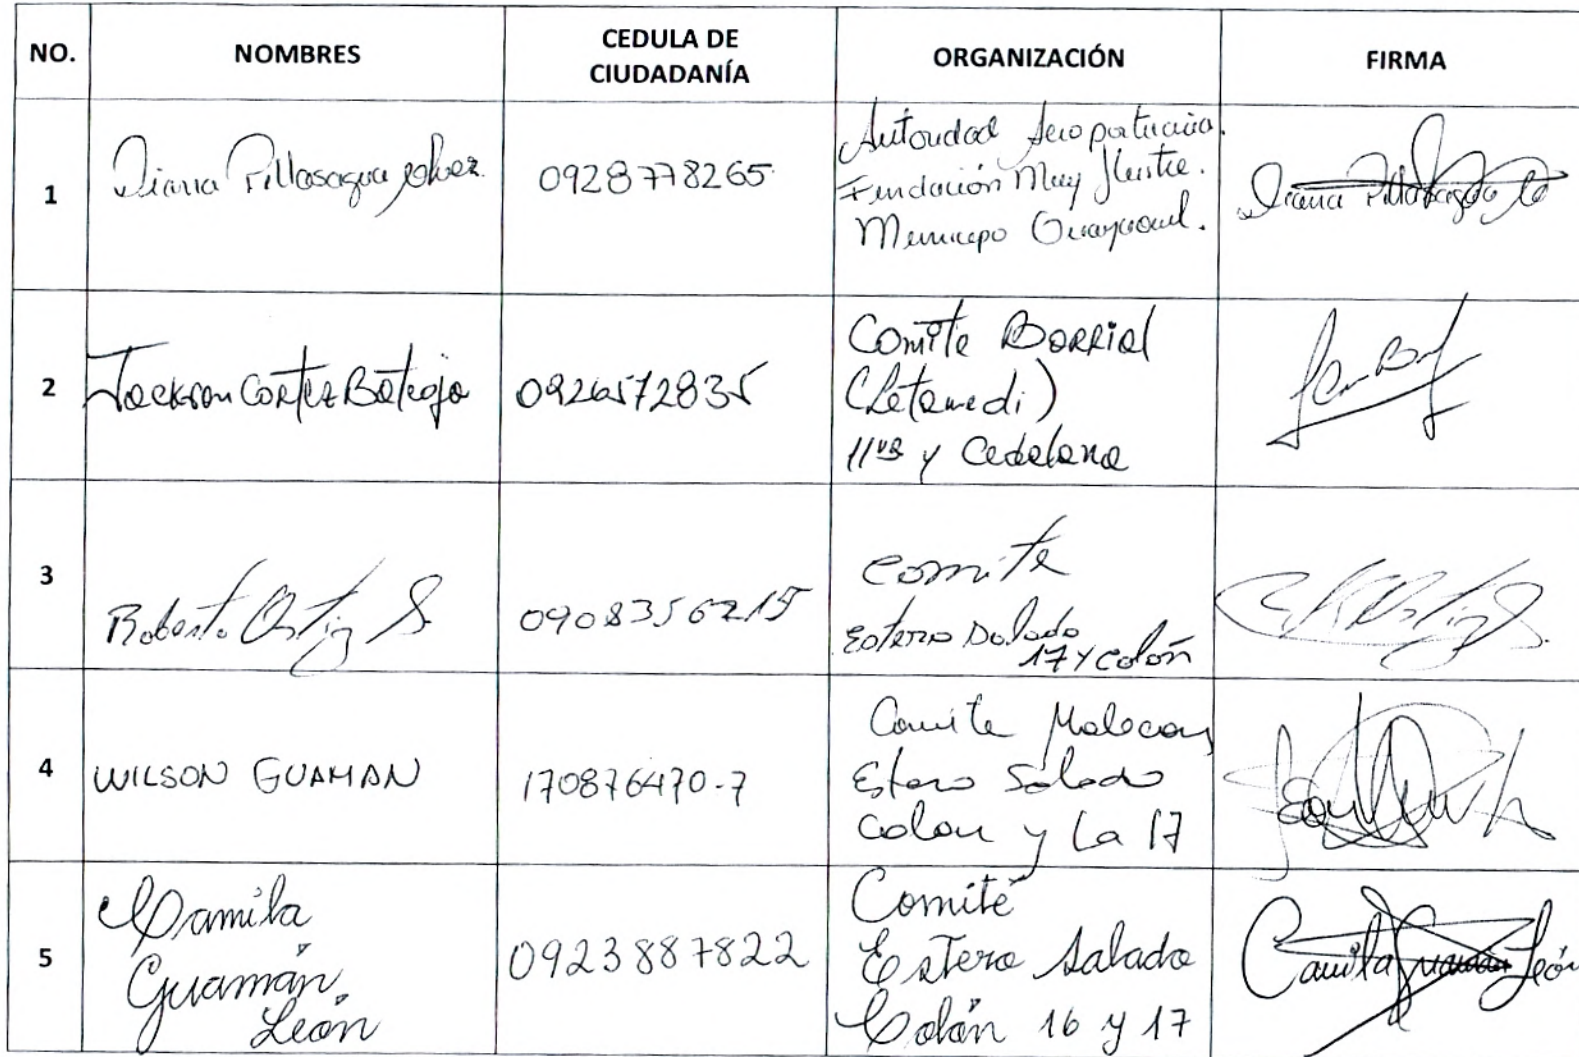 NO. NOMBRES CEDULA DE CIUDADANÍA ORGANIZACIÓN FIRMA
1 Diana Pillasagua 0928778265 Autoridad Aeroportuaria.
Fundación Muy Ilustre.
Municipo Guayaquil.
Diana Pillasagua
2 Jackson Cortez Batioja 0926572835 Comite Barrial
(Letamedi)
11va y
3 Roberto Ortiz S. 0908356215 Comite
Estero Salado
17 y Colón
4 WILSON GUAMAN 170876470-7 Comite Malecon
Estero Salado
Colon y La 17
5 Camila
Guamán
León
0923887822 Comité
Estero Salado
Colón 16 y 17
Camila Guamán León